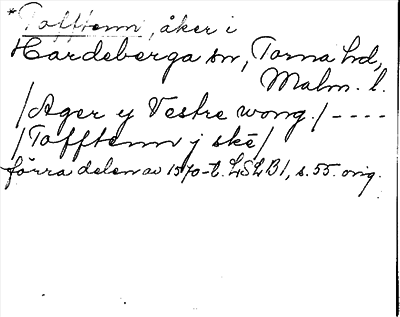 *Tofftenn, åker i
Hardeberga sn, Torna hd,
Malm. l.
/Ager y Vestre wong./ ----
/Tofftenn j ske/
förra delen av 1570-t. LSLB1, s. 55. orig.